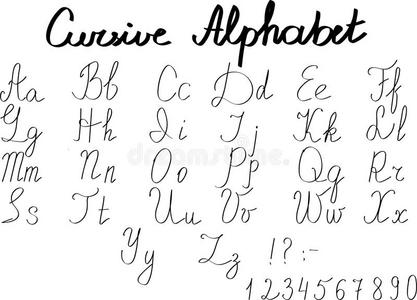 Cursive Alphabet
Aa Bb Cc Dd Ee Ff
Gg Hh Ii Jj Kk Ll
Mm Nn Oo Pp Qq Rr
Ss Tt Uu Vv Ww Xx
Yy Zz !?:-
1234567890